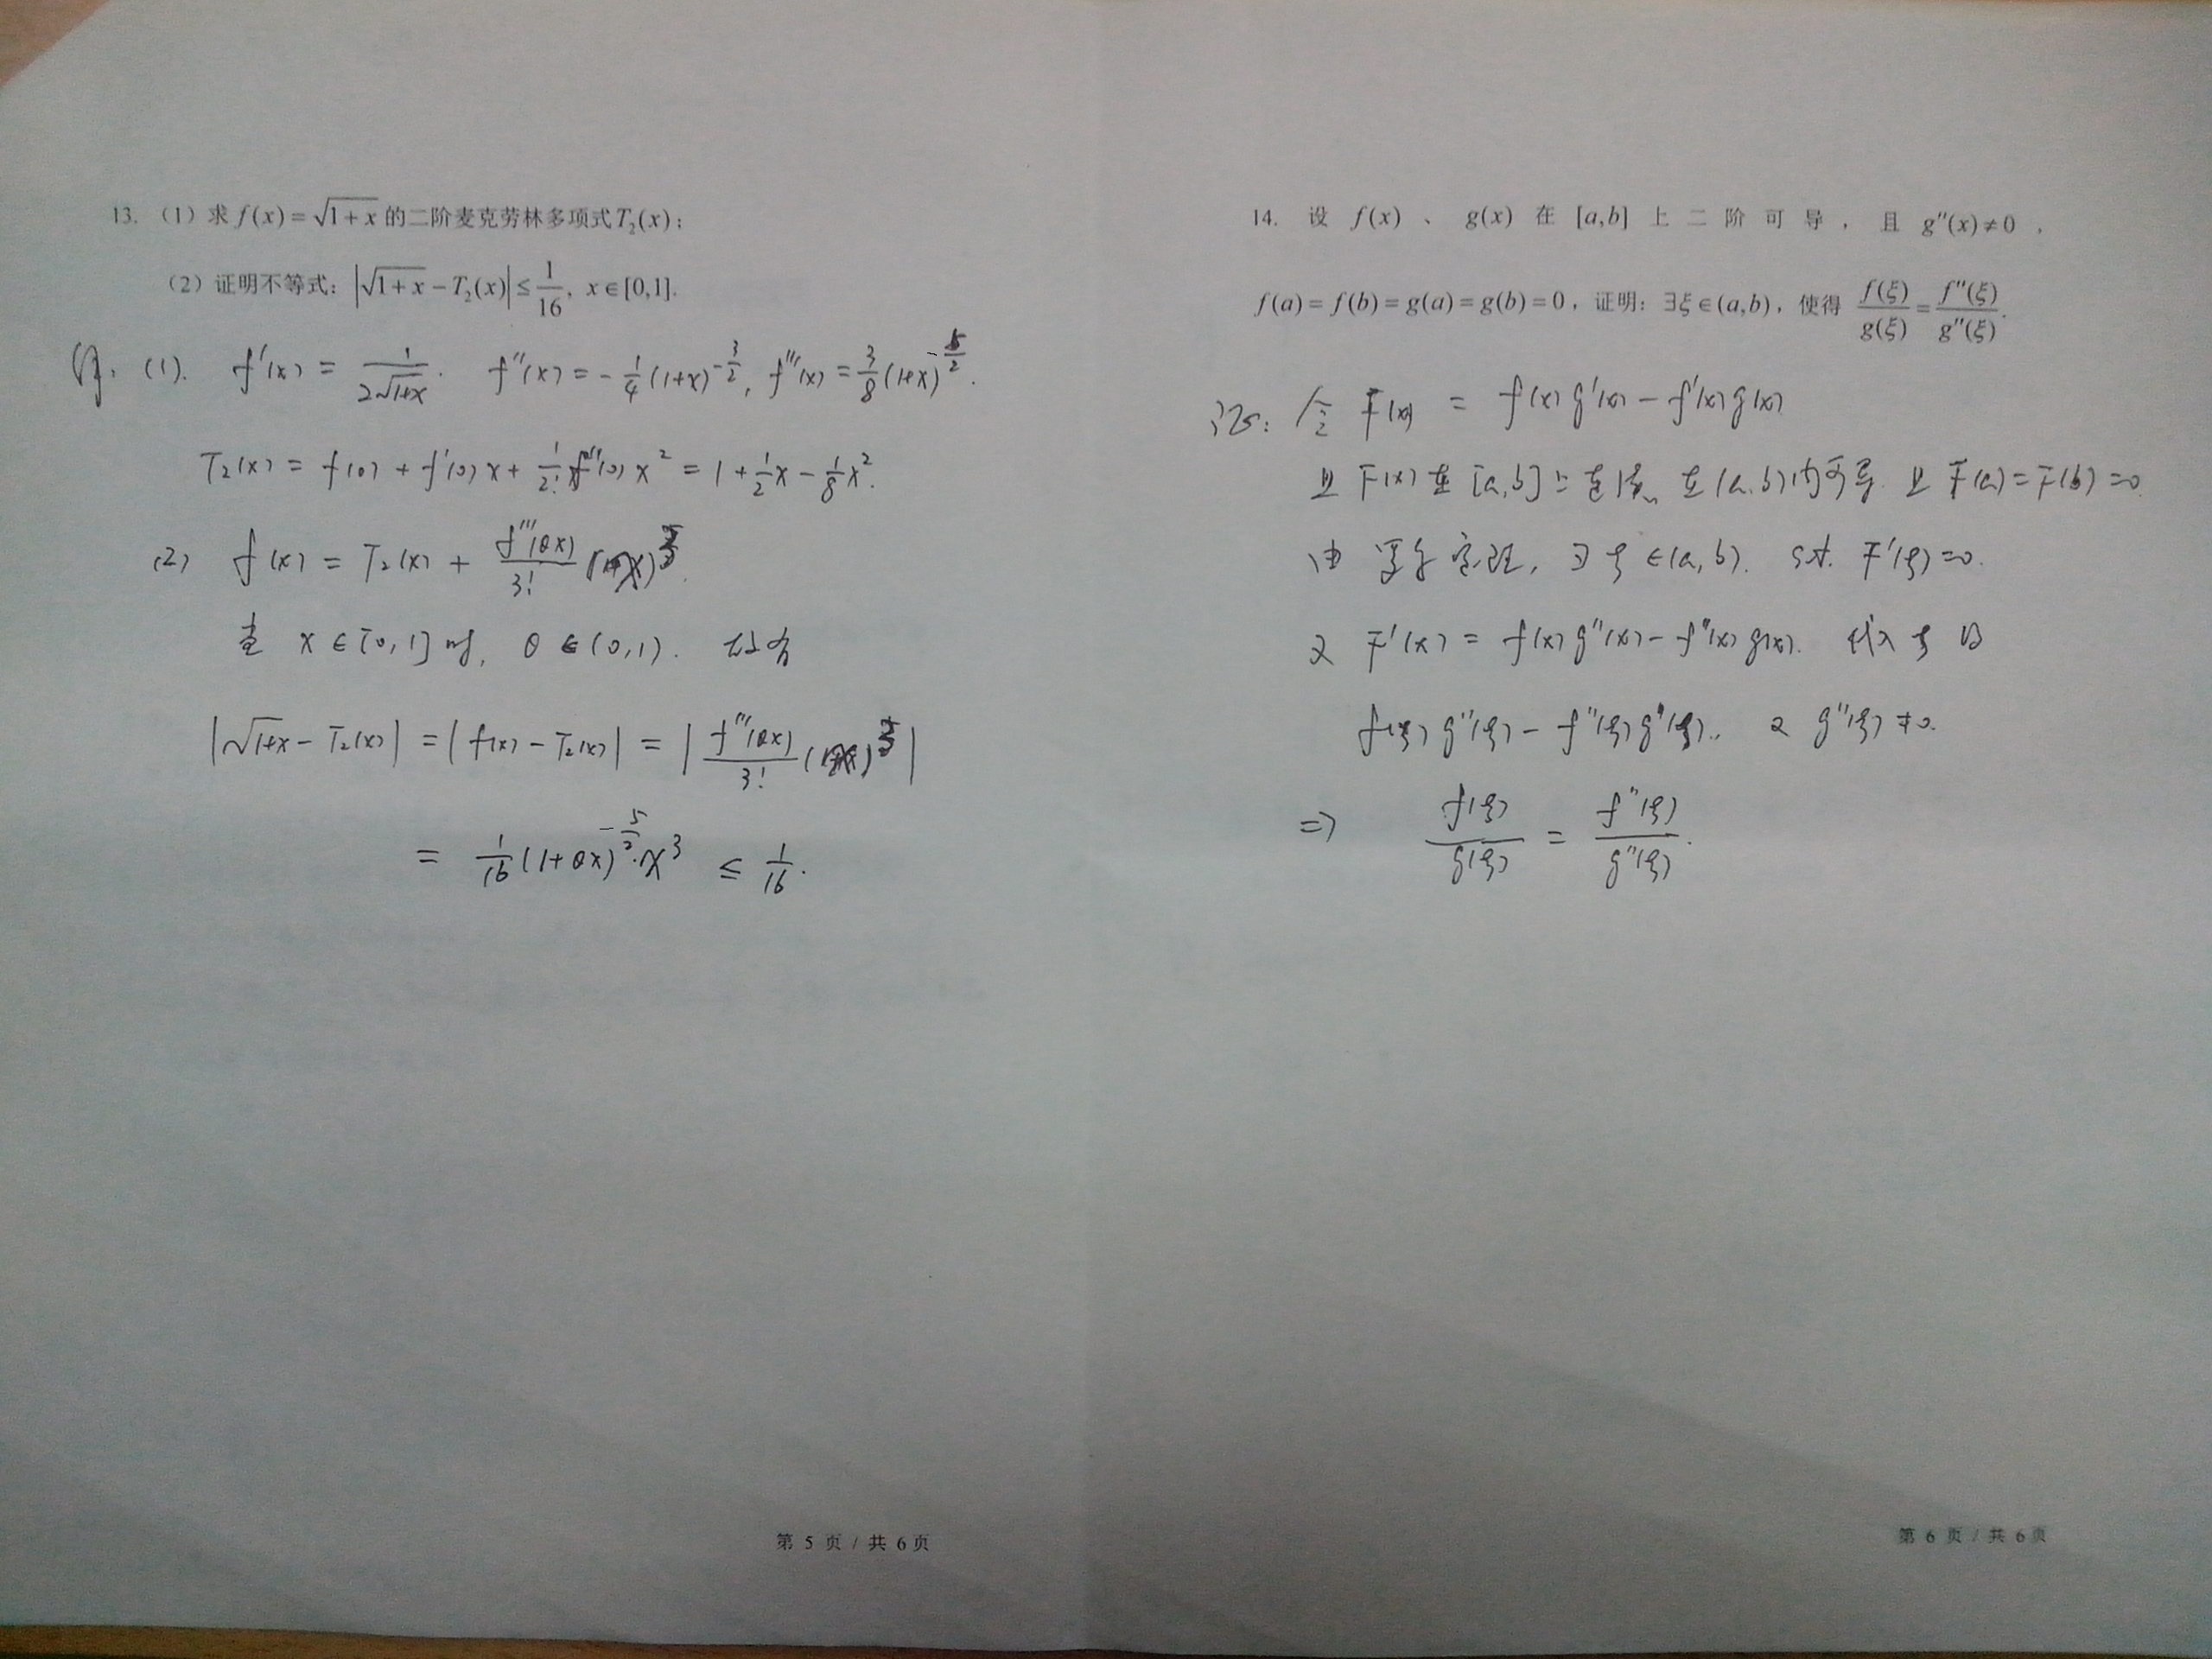 13. （1）求 f(x) = √(1+x) 的二阶麦克劳林多项式 T₂(x)；
（2）证明不等式：|√(1+x) − T₂(x)| ≤ 1/16, x∈[0,1].
(1). f'(x) = 1/(2√(1+x)). f''(x) = −1/4 (1+x)^(−3/2), f'''(x) = 3/8 (1+x)^(−5/2).
T₂(x) = f(0) + f'(0)x + 1/2! f''(0) x² = 1 + 1/2 x − 1/8 x².
(2) f(x) = T₂(x) + f'''(θx)/3!
x ∈ [0,1] 时, θ ∈ (0,1).
|√(1+x) − T₂(x)| = |f(x) − T₂(x)| = | f'''(θx)/3! |
= 1/16 (1+θx)^(−5/2) · x³ ≤ 1/16.
第 5 页 / 共 6 页
14. 设 f(x) 、 g(x) 在 [a,b] 上二阶可导，且 g''(x)≠0，
f(a) = f(b) = g(a) = g(b) = 0，证明：∃ξ∈(a,b)，使得 f(ξ)/g(ξ) = f''(ξ)/g''(ξ).
证: 令 F(x) = f(x)g'(x) − f'(x)g(x)
且 F(x) 在 [a,b] 上连续, 在 (a,b) 内可导. 且 F(a) = F(b) = 0.
由罗尔定理, ∃ ξ ∈ (a,b). s.t. F'(ξ) = 0.
又 F'(x) = f(x)g''(x) − f''(x)g(x). 代入 ξ 得
f(ξ)g''(ξ) − f''(ξ)g(ξ). 又 g''(ξ) ≠ 0.
⇒ f(ξ)/g(ξ) = f''(ξ)/g''(ξ).
第 6 页 / 共 6 页